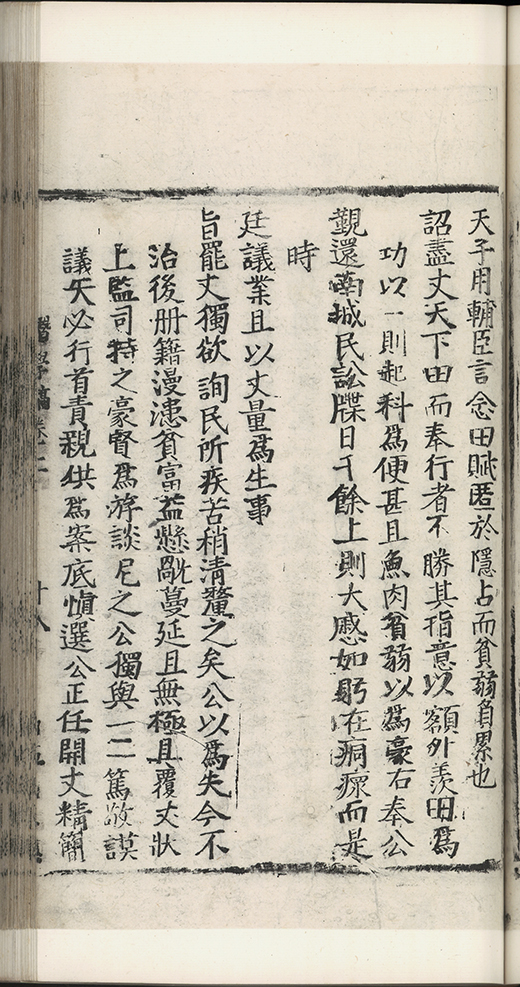 天子用輔臣言念田賦匿於隱占而貧弱負累也
詔盡丈天下田而奉行者不勝其指意以額外羨田為
功以一則起科為便甚且魚肉貧弱以為豪右奉公
覲還南城民訟牒日千餘上則大慼如躬在痌瘝而是
時
廷議業且以丈量為生事
旨罷丈獨欲詢民所疾苦稍清釐之矣公以為失今不
治後册籍漫漶貧富益懸蔓延且無極且覆丈狀
上監司持之豪督為游談尼之公獨與一二篤敬謨
議矢必行首責親供為案底慎選公正任開丈精簡
稿卷二
十八